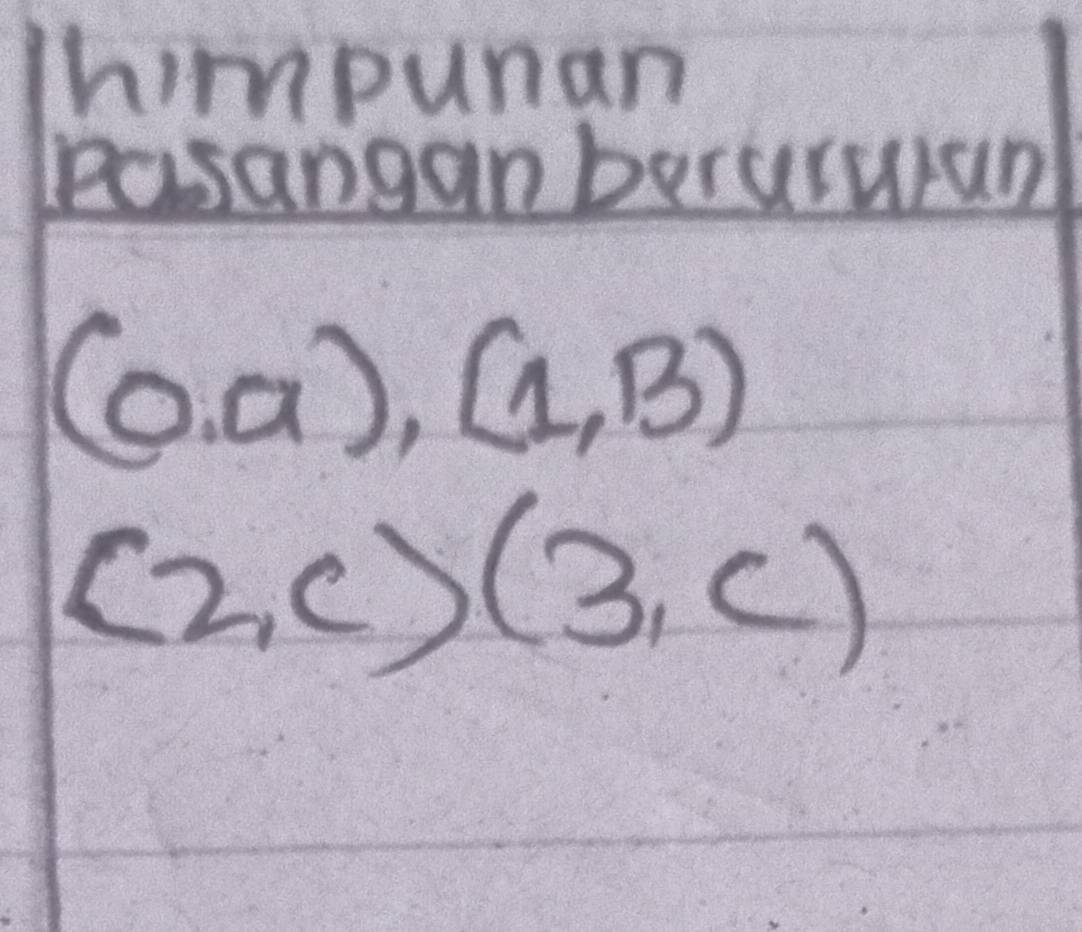 himpunan
Pasangan berurutan
(0.a), (1,B)
(2,c) (3, c)